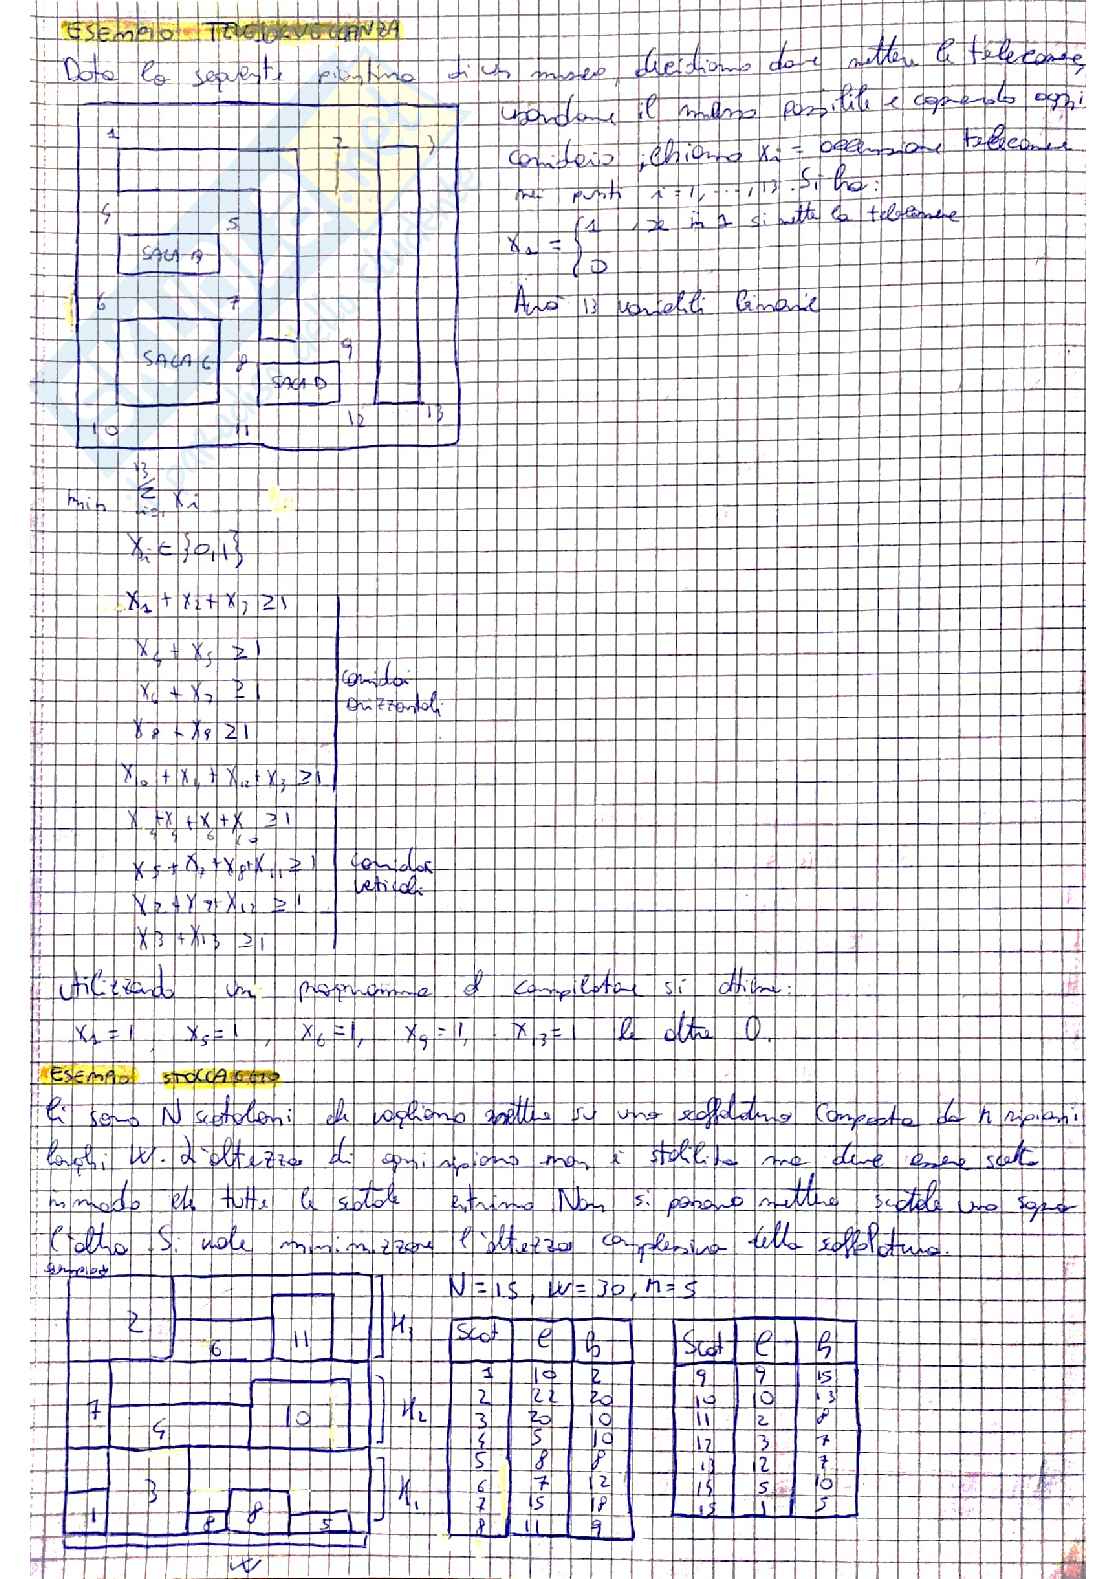 ESEMPIO TELESORVEGLIANZA
Data la seguente piantina di un museo, decidiamo dove mettere le telecamere,
usandone il minor possibile e coprendo ogni
corridoio, chiamo xi = accensione telecamere
nei punti i=1,...,13. Si ha:
x1 = { 1, se in 1 si mette la telecamera
0
Avrò 13 variabili binarie
1 2 3
4 5
SALA A
6 7
SALA C 8 9
SALA D
10 11 12 13
min Σ xi
13
i=1
xi ∈ {0,1}
x1 + x2 + x3 ≥ 1
x4 + x5 ≥ 1
x6 + x7 ≥ 1
corridoi
orizzontali
x8 + x9 ≥ 1
x10 + x11 + x12 + x13 ≥ 1
x1 + x4 + x6 + x10 ≥ 1
x5 + x7 + x8 + x11 ≥ 1
corridoi
verticali
x2 + x9 + x12 ≥ 1
x3 + x13 ≥ 1
Utilizzando un programma al compilatore si ottiene:
x1=1, x5=1, x6=1, x9=1, x13=1 le altre 0.
ESEMPIO STOCCAGGIO
Ci sono N scatoloni che vogliamo mettere su una scaffalatura composta da n ripiani
larghi W. L'altezza di ogni ripiano non è stabilita ma deve essere scelta
in modo che tutte le scatole entrino. Non si possono mettere scatole una sopra
l'altra. Si vuole minimizzare l'altezza complessiva della scaffalatura.
N=15, W=30, n=5
2 6 11 H3
7 4 10 H2
1 3 8 8 5 H1
W
Scat l h
1 10 2
2 22 20
3 20 10
4 5 10
5 8 8
6 7 12
7 15 18
8 11 9
Scat l h
9 9 15
10 10 13
11 2 8
12 3 7
13 12 7
15 5 10
15 1 5